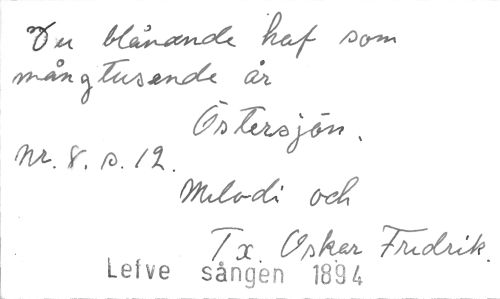 Du blånande haf som
mångtusende år
Östersjön.
Nr. 8. s. 12.
Melodi och
Tx. Oskar Fredrik.
Lefve sången 1894